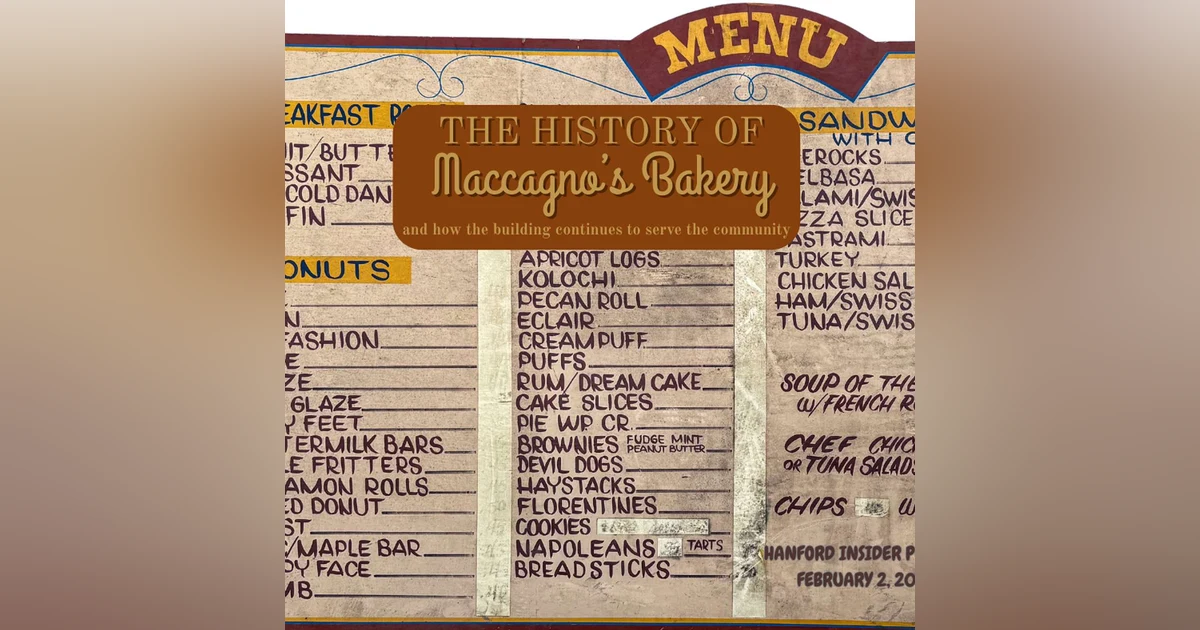 MENU
THE HISTORY OF
Maccagno's Bakery
and how the building continues to serve the community
EAKFAST
IT/BUTTE
SSANT
COLD DAN
FIN
ONUTS
N
FASHION
E
ZE
GLAZE
Y FEET
TERMILK BARS
LE FRITTERS
AMON ROLLS
ED DONUT
ST
/MAPLE BAR
PY FACE
MB
APRICOT LOGS
KOLOCHI
PECAN ROLL
ECLAIR
CREAM PUFF
PUFFS
RUM/DREAM CAKE
CAKE SLICES
PIE WP CR.
BROWNIES FUDGE MINT
PEANUT BUTTER
DEVIL DOGS
HAYSTACKS
FLORENTINES
COOKIES
NAPOLEANS TARTS
BREADSTICKS
SANDW
WITH
EROCKS
ELBASA
LAMI/SWIS
ZZA SLICE
ASTRAMI
TURKEY
CHICKEN SAL
HAM/SWISS
TUNA/SWIS
SOUP OF THE
W/FRENCH R
CHEF CHIC
OR TUNA SALADS
CHIPS
HANFORD INSIDER P
FEBRUARY 2, 20